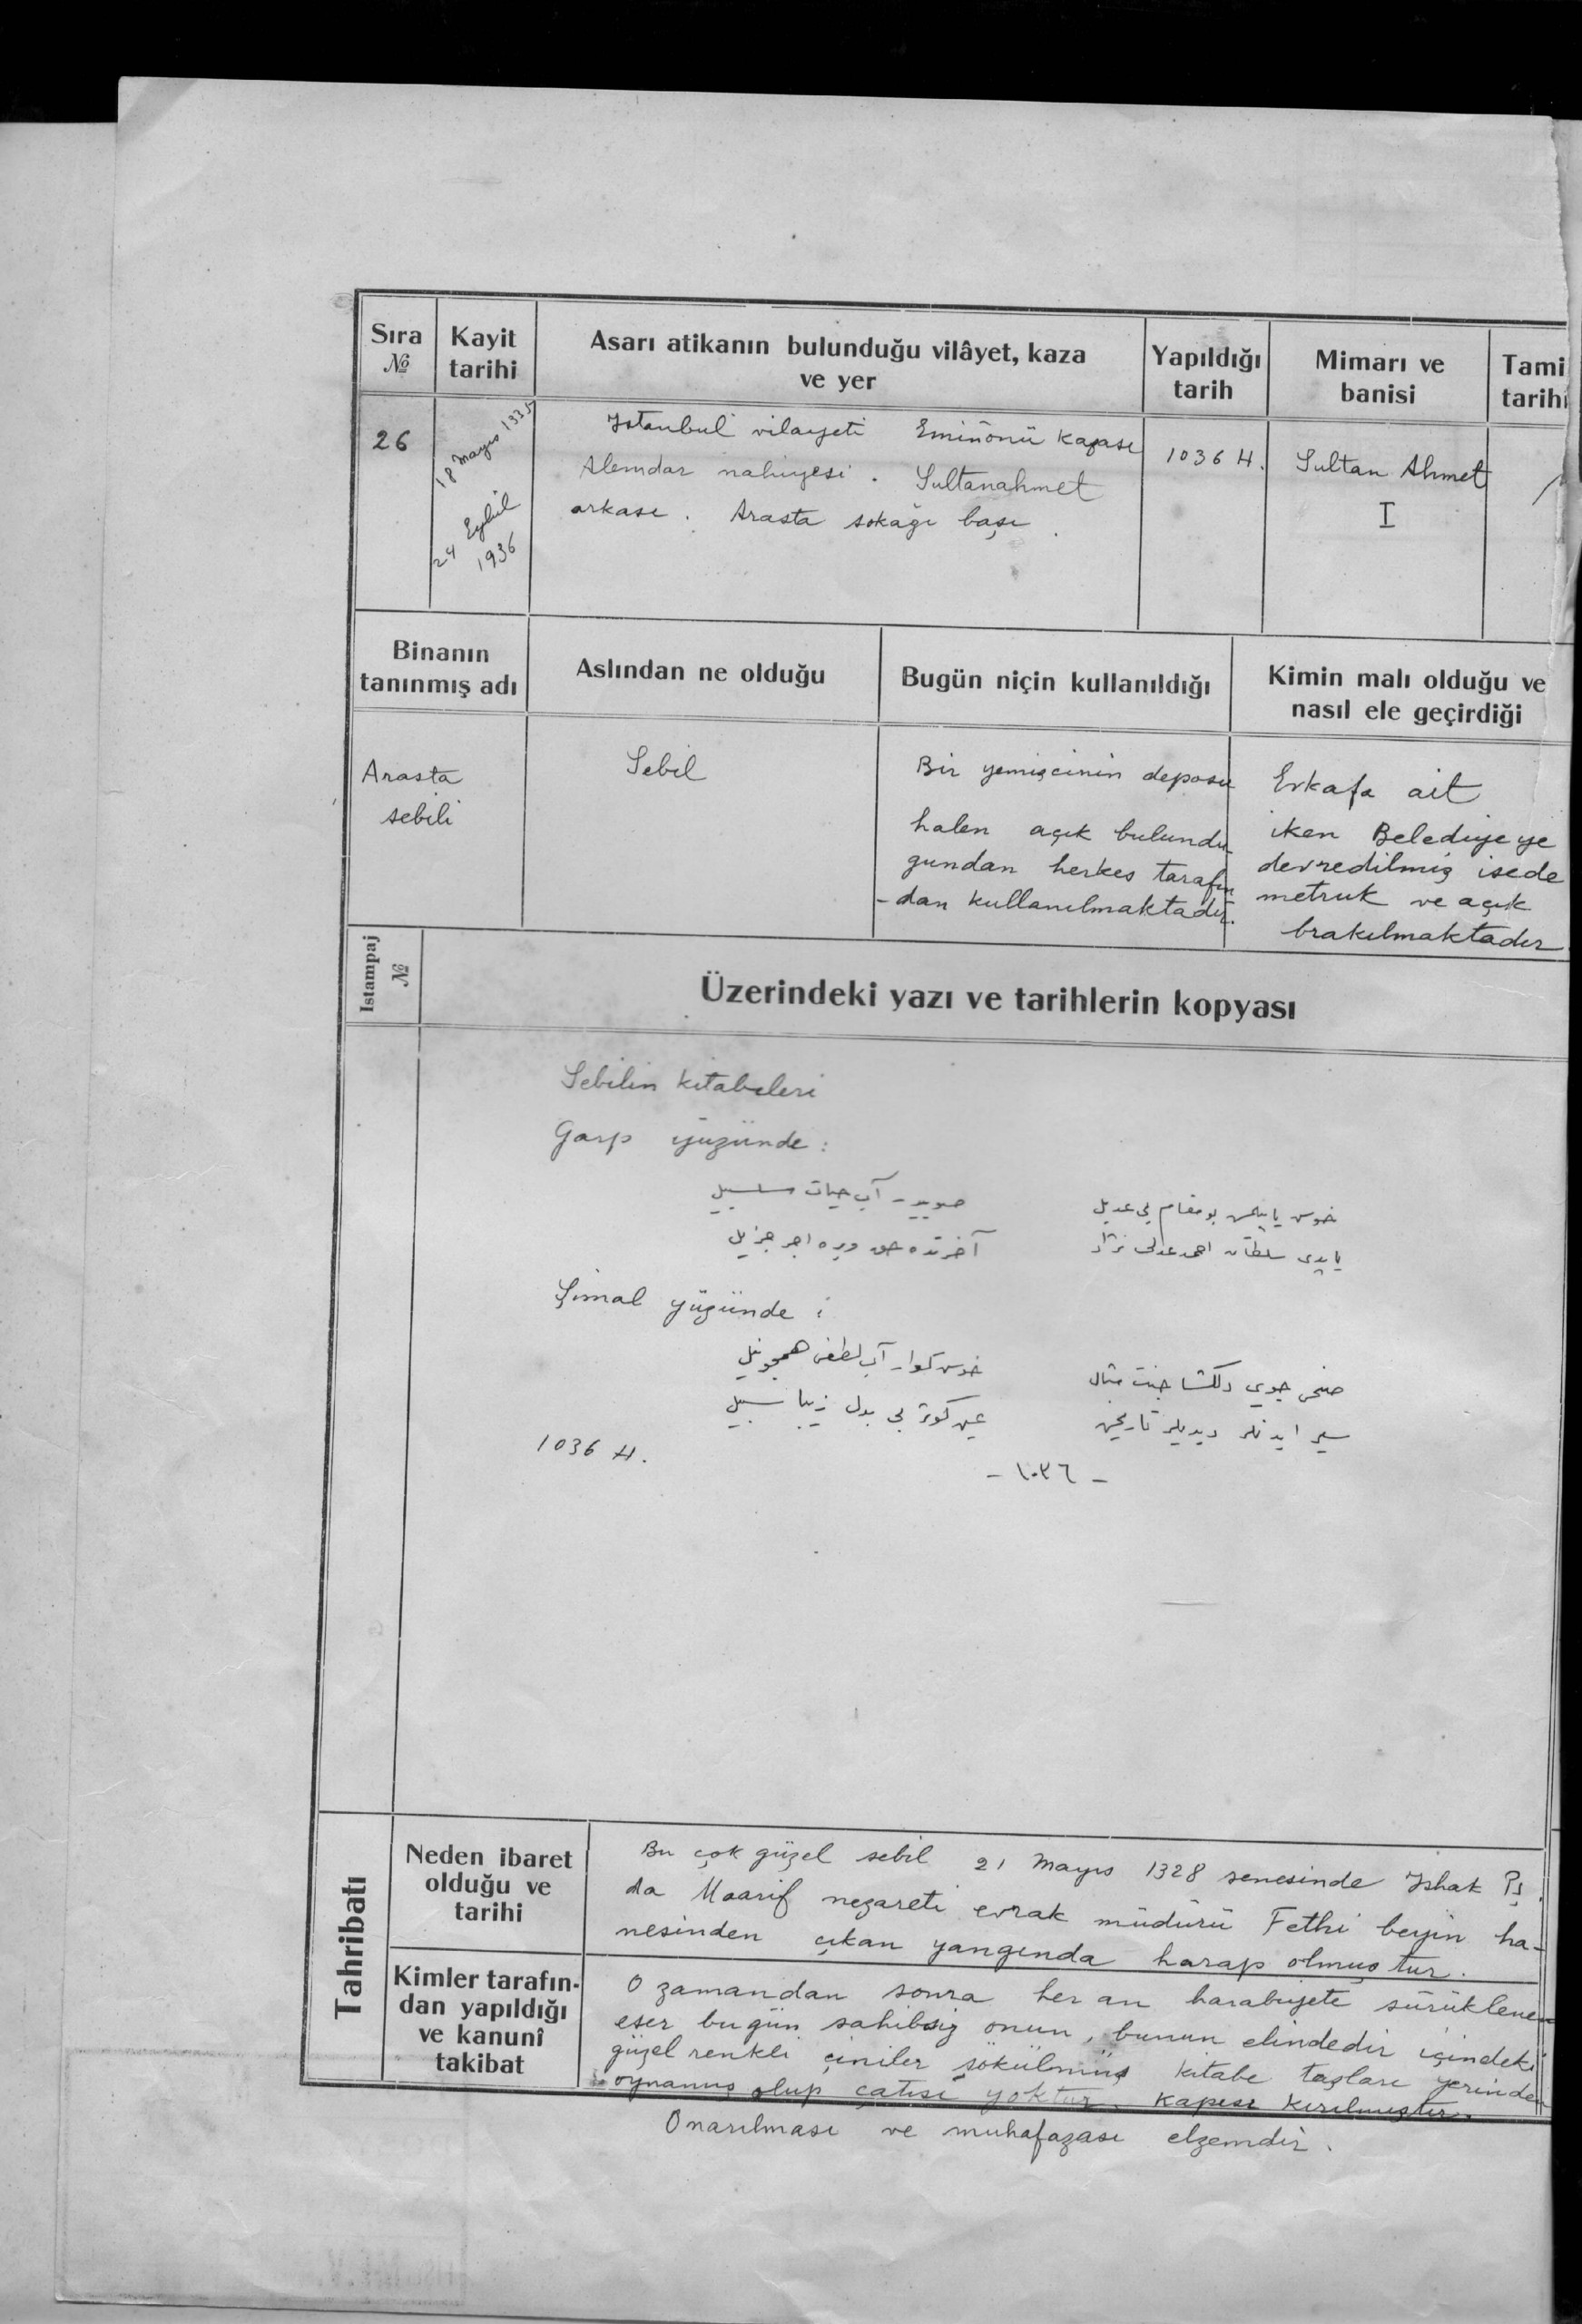 Sıra
№
Kayit
tarihi
Asarı atikanın bulunduğu vilâyet, kaza
ve yer
Yapıldığı
tarih
Mimarı ve
banisi
Tami
tarihi
26
18 Mayıs 133
24 Eylül
1936
Istanbul vilayeti Eminönü kazası
Alemdar nahiyesi. Sultanahmet
arkası. Arasta sokağı başı.
1036 H.
Sultan Ahmet
I
Binanın
tanınmış adı
Aslından ne olduğu
Bugün niçin kullanıldığı
Kimin malı olduğu ve
nasıl ele geçirdiği
Arasta
sebili
Sebil
Bir yemişcinin deposu
halen açık bulundu
gundan herkes tarafın
-dan kullanılmaktadır.
Evkafa ait
iken Belediyeye
devredilmiş isede
metruk ve açık
brakılmaktadır
Istampaj
№
Üzerindeki yazı ve tarihlerin kopyası
Sebilin kitabeleri
Garp yüzünde:
خوش یاپلمش بو مقام بی عدیل
آب حیات سلسبیل
یاپدی سلطان احمد عدالی نژاد
آخرتده حق ویره اجر جزیل
Şimal yüzünde:
دلکشا جنت مثال
خوش کوار آب لطفی همچو نیل
سیر ایدنلر دیدیلر تاریخن
عین کوثر بی بدل زیبا سبیل
1036 H.
- ١٠٣٦ -
Tahribatı
Neden ibaret
olduğu ve
tarihi
Bu çok güzel sebil 21 Mayıs 1328 senesinde Ishak Pş.
da Maarif nezareti evrak müdürü Fethi beyin ha-
nesinden çıkan yangında harap olmuştur.
Kimler tarafın-
dan yapıldığı
ve kanunî
takibat
O zamandan sonra her an harabiyete sürüklenen
eser bugün sahibsiz onun, bunun elindedir içindeki
güzel renkli çiniler sökülmüş kitabe taşları yerinden
oynamış olup çatısı yoktur. Kapısı kırılmıştır.
Onarılması ve muhafazası elzemdir.